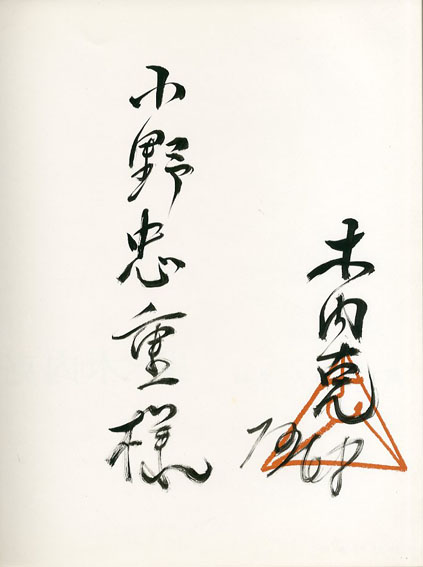 木内克
小野忠重様